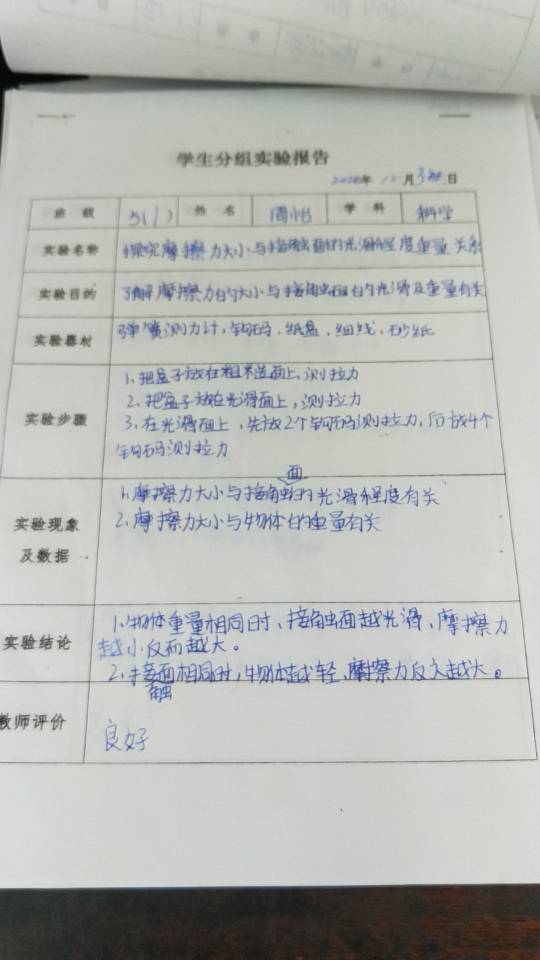 学生分组实验报告
2020年 12月3日
班 级 5(1) 姓 名 周 学 科 科学
实验名称 探究摩擦力大小与接触面的光滑程度重量关系
实验目的 了解摩擦力的大小与接触面的光滑及重量有关
实验器材 弹簧测力计,钩码,纸盒,细线,砂纸
1.把盒子放在粗糙面上,测拉力
2.把盒子放在光滑面上,测拉力
实验步骤 3.在光滑面上,先放2个钩码测拉力,后放4个
钩码测拉力
面
1.摩擦力大小与接触的光滑程度有关
实验现象 2.摩擦力大小与物体的重量有关
及数据
1.物体重量相同时、接触面越光滑、摩擦力
实验结论 越小反而越大。
2.接面相同时,物体越轻、摩察力反之越大。
触
教师评价 良好